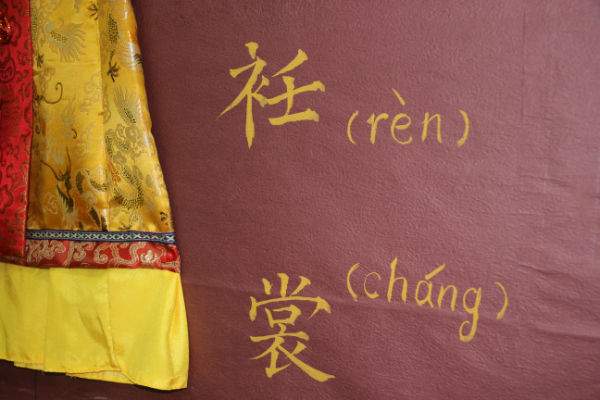 衽 (rèn)
裳 (cháng)